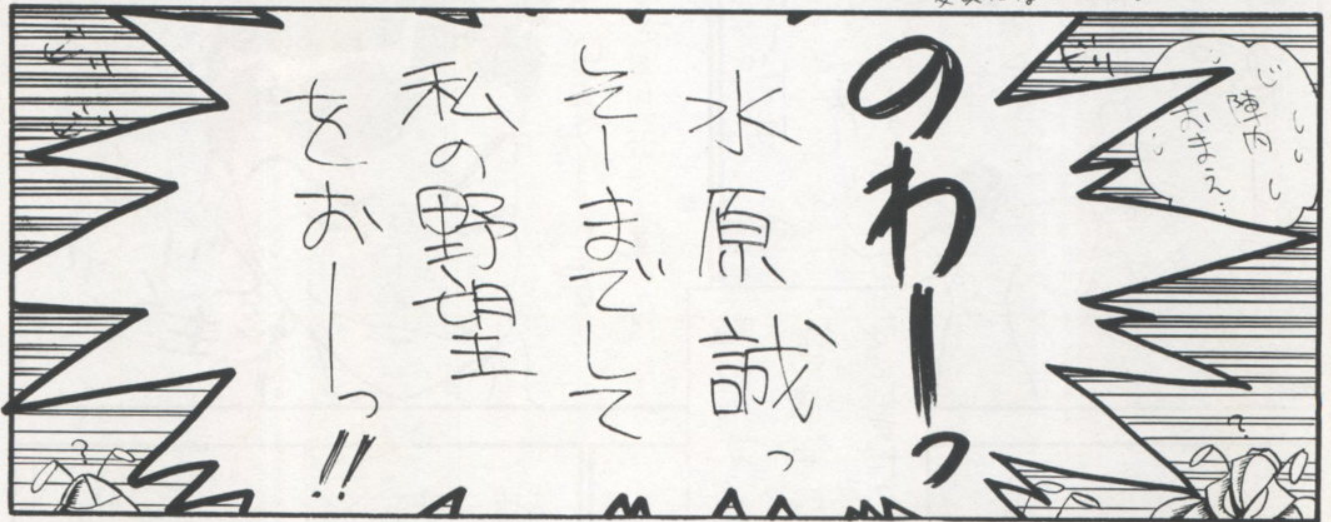 じ
陣内
おまえ…
ビリ
のわーっ
水原誠っ
そーまでして
私の野望
をおーーっ!!
ビリ
ビリ
?
?